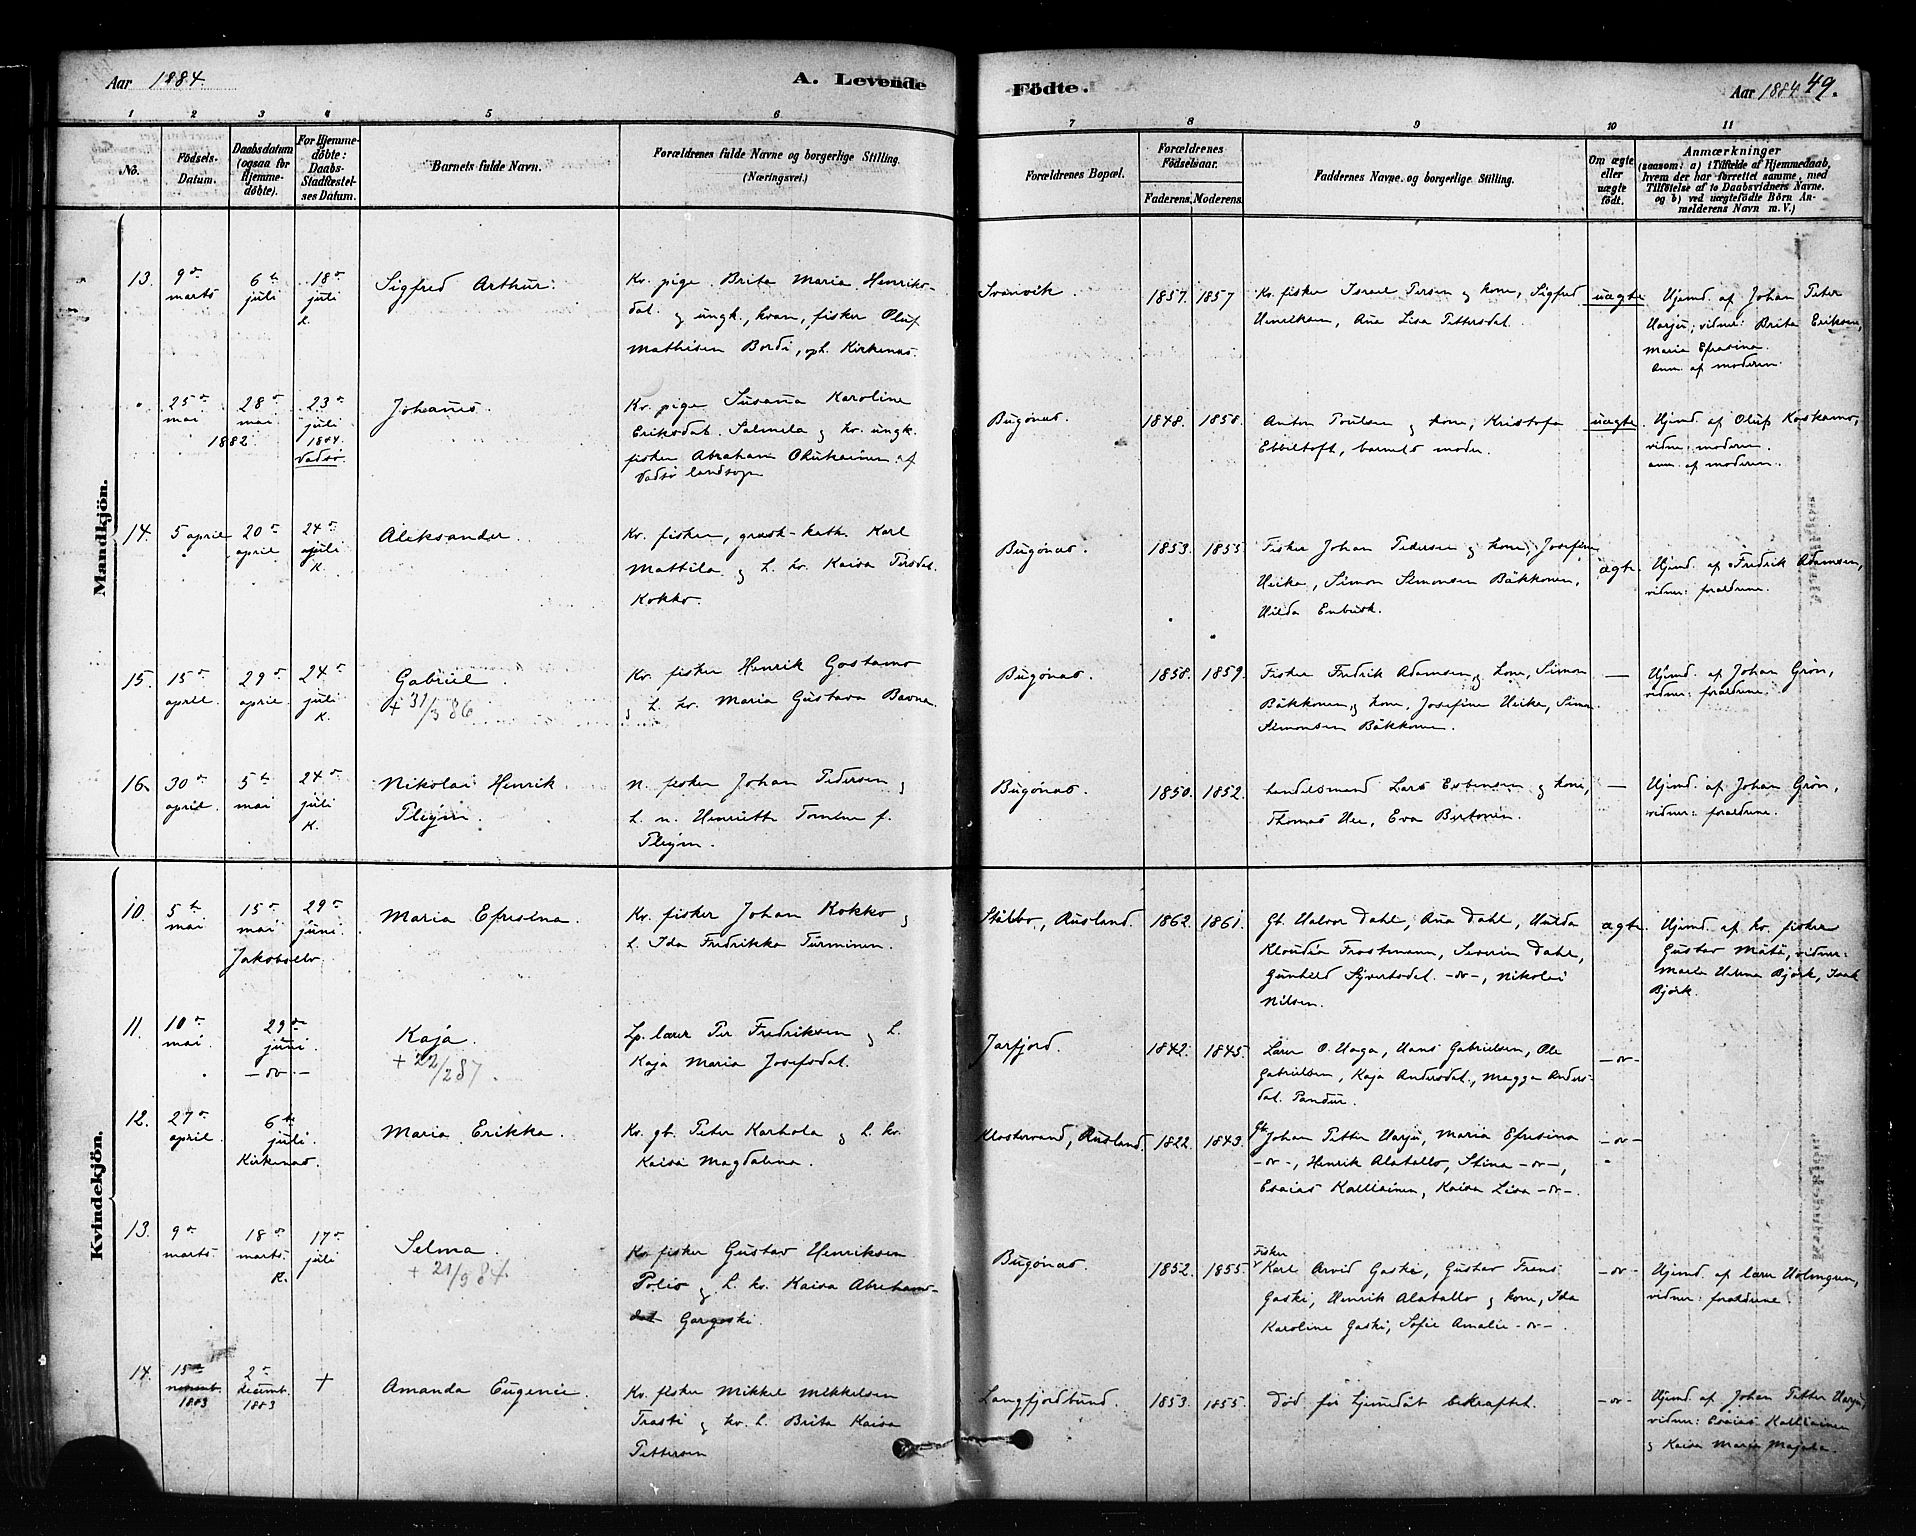 Aar 1884.
A. Levende
Födte.
Aar 1884 49.
1 2 3 4 5 6 7 8 9 10 11
No.
Födsels-
Datum.
Daabsdatum
(ogsaa for
Hjemme-
döbte).
For Hjemme-
döbte:
Daabs-
Stadfæstel-
ses Datum.
Barnets fulde Navn.
Forældrenes fulde Navne og borgerlige Stilling.
(Næringsvei.)
Forældrenes Bopæl.
Forældrenes
Födselsaar.
Faderens. Moderens.
Faddernes Navne og borgerlige Stilling.
Om ægte
eller
uægte
födt.
Anmærkninger
(saasom: a) i Tilfælde af Hjemmedaab,
hvem der har forrettet samme, med
Tilföielse af to Daabsvidners Navne.
og b) ved uægtefödte Börn An-
melderens Navn m. V.)
Mandkjön.
13. 9de marts
6te juli
18de juli
K.
Sigfred Arthur.
Kv. pige Brita Maria Henriks-
dat. og ungk., kvæn, fisker Oluf
Mathisen Bordi, oph. Kirkenæs.
Svanvik.
1857. 1857
Kv. fisker Israel Persen og kone, Sigfred
Henriksen, Ana Lisa Pettersdat.
uægte
Hjemd. af Johan Peter
Harju, vidner: Brita Eriksen,
Maria Efrosina.
Anm. af moderen
25de mai
28de mai
1882.
23de juli
1884.
Vadsø.
Johannes.
Kv. pige Susana Karoline
Eriksdat. Salmela og kv. ungk.
fisker Abraham Okukainen af
Vadsø landsogn
Bugønæs.
1848. 1858.
Anton Poulsen og kone, Kristofa
Ebbeltoft, barnets moder.
uægte.
Hjemd. af Oluf Koskamo,
vidne: moderen.
anm. af moderen.
14. 5 april
20de april
24de juli
K.
Aleksander.
Kv. fisker, græsk-kath. Karl
Mattila og h. kv. Kaisa Persdat.
Kokko.
Bugønæs.
1853. 1855
Fisker Johan Pedersen og kone, Josefine
Heika, Simon Simonsen Bäkkonen,
Hilda Enbusk.
ægte.
Hjemd. af Fredrik Adamsen,
vidner: forældrene.
15. 15de april.
29de april.
24de juli
K.
Gabriel
+ 31/3 86
Kv. fisker Henrik Gostamo
og h. kv. Maria Gustava Bavna.
Bugønæs.
1858. 1859.
Fisker Fredrik Adamsen og kone, Simon
Bäkkonen og kone, Josefine Heika, Simon
Simonsen Bäkkonen.
—
Hjemd. af Johan Grön,
vidner: forældrene.
16. 30de april.
5te mai
24de juli
K.
Nikolai Henrik
Pleym.
N. fisker Johan Pedersen og
h. n. Henriette Tomine f.
Pleym.
Bugønæs.
1850. 1852.
Lendsmand Lars Esbensen og kone,
Thomas Uee, Eva Bertonin.
—
Hjemd. af Johan Grön,
vidner: forældrene.
Kvindekjön.
10. 5te mai
15de mai
Jakobselv
29de juni.
Maria Efresina.
Kv. fisker Johan Kokko og
h. Ida Fredrikka Turminen.
Stalbo, Rusland.
1862. 1861.
Gt. Halvor Dahl, Ana Dahl, Hulda
Klaudia Frostmann, Severin Dahl,
Gunhild Syvertsdat. -or-, Nikolai
Nilsen.
ægte.
Hjemd. af kv. fisker
Gustav Mäte, vidner:
Maria Helena Björk, Isak
Björk.
11. 10de mai.
29de juni
-or-
Kaja.
+ 22/2 87.
Lp. lærer Per Fredriksen og h.
Kaja Maria Josefsdat.
Jarfjord.
1842. 1845.
Lærer O. Haga, Hans Gabrielsen, Ole
Gabrielsen, Kaja Andersdat., Magga Anders-
dat. Pandur.
-or-
12. 27de april.
6te juli.
Kirkenæs.
Maria Erikka.
Kv. gb. Peter Karhola og h. kv.
Kaisa Magdalena.
Klostervand, Rusland.
1822. 1843.
Gb. Johan Petter Harju, Maria Efresina
-or-, Henrik Alatallo, Stina -or-,
Esaias Kalliainen, Kaisa Lisa -or-.
-or-
13. 9de marts.
18de marts.
K.
17de juli
Selma.
+ 21/9 84.
Kv. fisker Gustav Henriksen
Polio og h. kv. Kaisa Abrahams-
dat Gargoski.
Bugønæs
1852. 1855.
Fisker
Karl Arvid Gaski, Gustav Frans
Gaski, Henrik Alatallo og kone, Ida
Karoline Gaski, Sofie Amalie -or-.
-or-
Hjemd. af lærer Holmgren,
vidner: forældrene.
14. 15de novemb.
1883
2de decemb.
1883
+
Amanda Eugenie.
Kv. fisker Mikkel Mikkelsen
Trasti og kv. h. Brita Kaisa
Pettersen
Langfjordbund.
1853. 1855.
Död för hjemdåb bekræftet.
-or-
Hjemd. af Johan Petter Harju,
vidner: Esaias Kalliainen
og Kaisa Maria Majala.